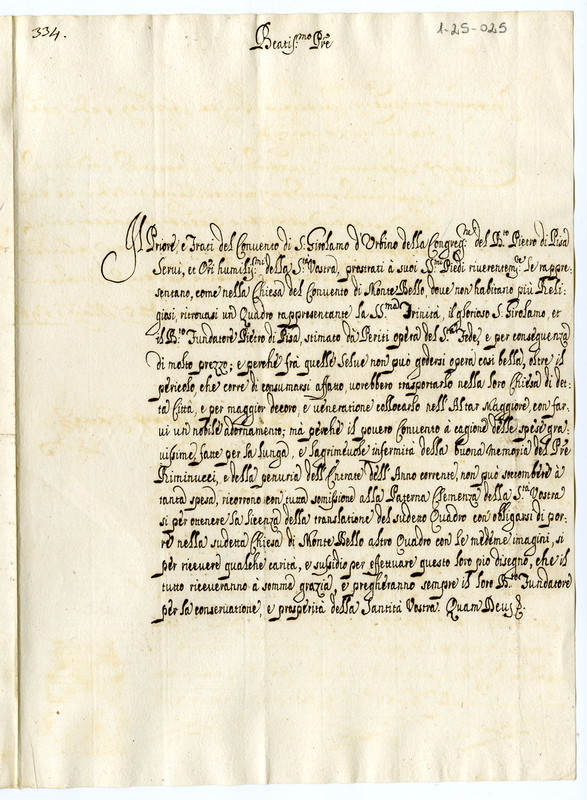 334.
1-25-025
Beatis.mo Pre
Il Priore, e Frati del Convento di S: Girolamo d'Urbino della Congreg:ne del B:to Pietro di Pisa
Servi, et Ori humilis:mi della S:ta Vostra, prostrati à suoi SS:mi Piedi riverentem:te Le rappre-
sentano, come nella Chiesa del Convento di Monte Bello, dove non habitano più Reli-
giosi, ritrovasi un Quadro rappresentante la SS:ma Trinità, il glorioso S: Girolamo, et
il B:to Fundatore Pietro di Pisa, stimato da Periti opera del S:r Fede, e per conseguenza
di molto prezzo; e perche frà quelle Selve non può godersi opera così bella, oltre il
pericolo che corre di consumarsi affatto, vorebbero trasportarlo nella loro Chiesa di det-
ta Città, e per maggior decoro e veneratione collocarlo nell'Altar Maggiore, con far-
vi un nobile adornamento; mà perche il povero Convento à cagione delle spese gra-
vissime fatte per la lunga, e lagrimevole infermità della buona memoria del Pre
Riminucci, e della penuria dell'Entrate dell'Anno corrente, non può soccombere à
tanta spesa, ricorrono con tutta somissione alla Paterna Clemenza della S:ta Vostra
sì per ottenere la licenza della translatione del sudetto Quadro con obligarsi di por-
re nella sudetta Chiesa di Monte Bello altro Quadro con le medeme imagini, sì
per ricevere qualche carità, e sussidio per effettuare questo loro pio disegno, che il
tutto riceveranno à somma grazia, e pregheranno sempre il loro B:to Fundatore
per la conservatione, e prosperità della Santità Vostra. Quam Deus